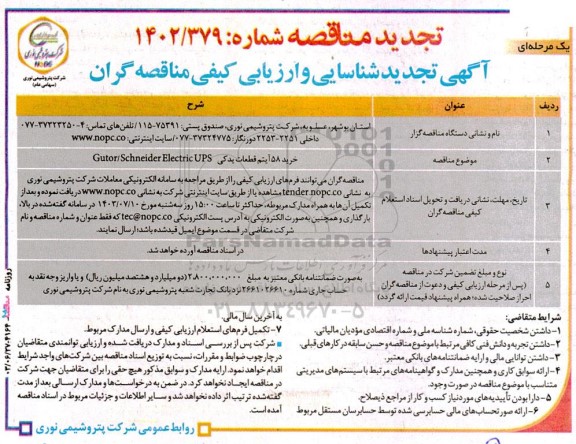 تجدید مناقصه شماره: ۱۴۰۲/۳۷۹
یک مرحله‌ای
آگهی تجدید شناسایی و ارزیابی کیفی مناقصه گران
شرکت پتروشیمی نوری
(سهامی عام)
ردیف عنوان شرح
۱ نام و نشانی دستگاه مناقصه‌گزار
استان بوشهر، عسلویه، شرکت پتروشیمی نوری، صندوق پستی: ۷۵۳۹۱-۱۱۵ / تلفن‌های تماس: ۴-۳۷۳۲۳۲۵۰-۰۷۷
داخلی ۲۲۵۱-۲۲۵۳ دورنگار: ۳۷۳۲۴۷۷۵-۰۷۷ سایت اینترنتی: www.nopc.co
۲ موضوع مناقصه خرید ۵۸ آیتم قطعات یدکی Gutor/Schneider Electric UPS
۳ تاریخ، مهلت، نشانی دریافت و تحویل اسناد استعلام کیفی مناقصه‌گران
مناقصه گران می توانند فرم‌های ارزیابی کیفی را از طریق مراجعه به سامانه الکترونیکی معاملات شرکت پتروشیمی نوری
به نشانی tender.nopc.co مشاهده یا از طریق سایت اینترنتی شرکت به نشانی www.nopc.co دریافت نموده و بعد از
تکمیل آن‌ها به همراه مدارک مربوطه، حداکثر تا ساعت ۱۵:۰۰ روز سه‌شنبه مورخ ۱۴۰۳/۰۷/۱۰ در سامانه گفته شده در بالا،
بارگذاری و همچنین به صورت الکترونیکی به آدرس پست الکترونیکی tec@nopc.co که فقط عنوان و شماره مناقصه و نام
شرکت متقاضی در قسمت موضوع ایمیل قید شده باشد؛ ارسال نمایند.
۴ مدت اعتبار پیشنهادها در اسناد مناقصه آورده خواهد شد.
۵ نوع و مبلغ تضمین شرکت در مناقصه
(پس از مرحله ارزیابی کیفی و دعوت از مناقصه‌گران
احراز صلاحیت شده؛ همراه پیشنهاد قیمت ارائه گردد)
به صورت ضمانتنامه بانکی معتبر به مبلغ ۲٬۸۰۰٬۰۰۰٬۰۰۰ (دو میلیارد و هشتصد میلیون ریال) و یا واریز وجه نقد به
حساب جاری شماره نزد بانک تجارت شعبه پتروشیمی نوری به نام شرکت پتروشیمی نوری
شرایط متقاضی:
۱- داشتن شخصیت حقوقی، شماره شناسه ملی و شماره اقتصادی مؤدیان مالیاتی.
۲- داشتن تجربه و دانش فنی کافی مرتبط با موضوع مناقصه و حسن سابقه در کارهای قبلی.
۳- داشتن توانایی مالی و ارایه ضمانتنامه‌های بانکی معتبر.
۴- ارائه سوابق کاری و همچنین مدارک و گواهینامه‌های مرتبط با سیستم‌های مدیریتی
متناسب با موضوع مناقصه در صورت وجود.
۵- دارا بودن تأییدیه‌های مورد نیاز کسب و کار از مراجع ذیصلاح.
۶- ارائه صورتحساب‌های مالی حسابرسی شده توسط حسابرسان مستقل مربوط
به آخرین سال مالی.
۷- تکمیل فرم‌های استعلام ارزیابی کیفی و ارسال مدارک مربوط.
شرکت پس از بررسی اسناد و مدارک دریافت شده و ارزیابی توانمندی متقاضیان
در چارچوب ضوابط و مقررات، نسبت به توزیع اسناد مناقصه بین شرکت‌های واجد شرایط
اقدام خواهد نمود. ارایه مدارک و سوابق مذکور هیچ حقی را برای متقاضیان جهت شرکت
در مناقصه ایجاد نخواهد کرد. در ضمن به درخواست‌ها و مدارک ارسالی بعد از مدت
گفته شده ترتیب اثر داده نخواهد شد و سایر اطلاعات و جزئیات مربوط در اسناد مناقصه
آمده است.
روابط عمومی شرکت پتروشیمی نوری
ParsNamadData
۰۲۱-۸۸۳۴۹۶۷۰-۵